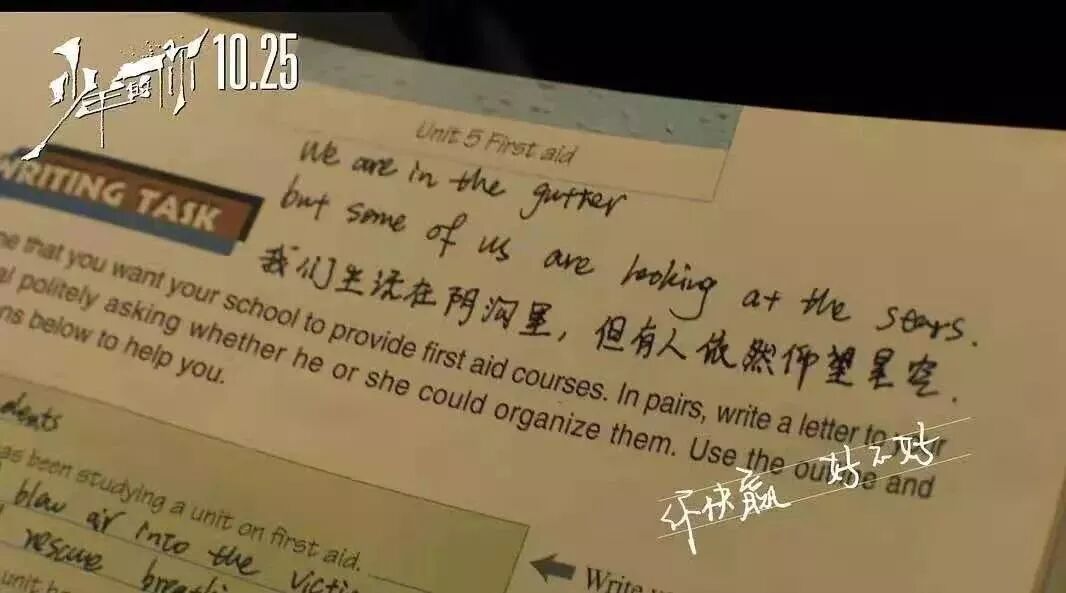 少年的你 10.25
Unit 5 First aid
We are in the gutter
WRITING TASK
but some of us are looking at the stars.
我们生活在阴沟里，但有人依然仰望星空.
ne that you want your school to provide first aid courses. In pairs, write a letter to your
al politely asking whether he or she could organize them. Use the outline and
ns below to help you.
你快赢 好不好
dents
as been studying a unit on first aid.
blow air into the victi
rescue breathi
Write
unit